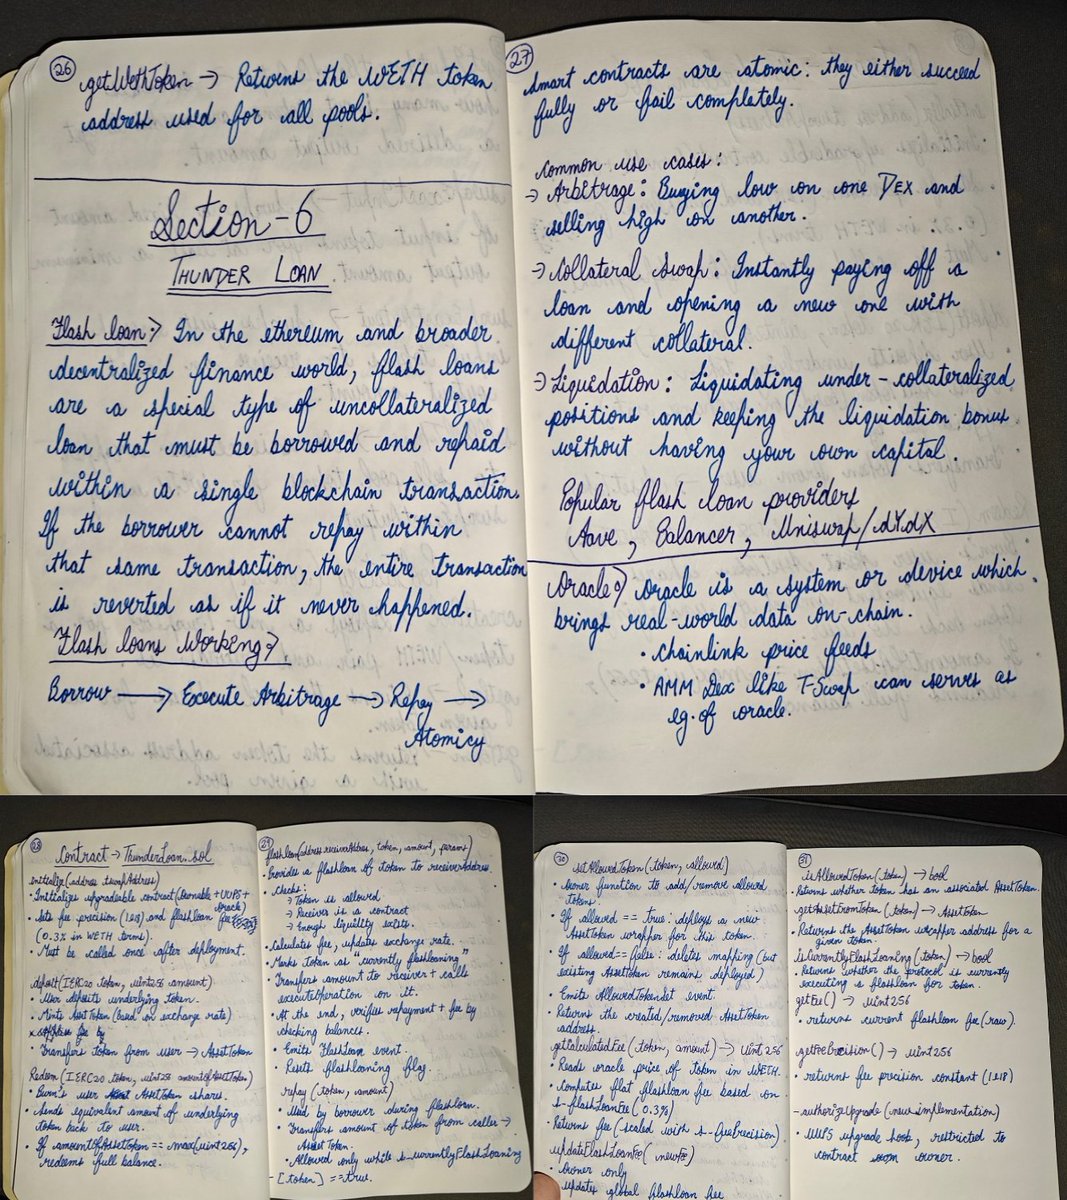 26
getWethToken → Returns the WETH token
address used for all pools.
Section - 6
THUNDER LOAN
Flash loan:> In the ethereum and broader
decentralized finance world, flash loans
are a special type of uncollateralized
loan that must be borrowed and repaid
within a single blockchain transaction.
If the borrower cannot repay within
that same transaction, the entire transaction
is reverted as if it never happened.
Flash loans Working:>
Borrow → Execute Arbitrage → Repay →
Atomicy
27
Smart contracts are atomic: they either succeed
fully or fail completely.
Common use cases:
→ Arbitrage: Buying low on one DEX and
selling high on another.
→ Collateral Swap: Instantly paying off a
loan and opening a new one with
different collateral.
→ Liquidation: Liquidating under-collateralized
positions and keeping the liquidation bonus
without having your own capital.
Popular flash loan providers
Aave, Balancer, Uniswap/dYdX
Oracle:> Oracle is a system or device which
brings real-world data on-chain.
• Chainlink price feeds
• AMM Dex like T-Swap can serves as
eg. of oracle.
28
Contract → ThunderLoan.sol
initialize(address tswapAddress)
• Initializes upgradeable contract (Ownable + UUPS +
Oracle)
• Sets fee precision (1e18) and flashloan fee
(0.3% in WETH terms).
• Must be called once after deployment.
deposit(IERC20 token, uint256 amount)
• User deposits underlying token.
• Mints AssetToken (based on exchange rate)
• Transfers token from user → AssetToken
Redeem(IERC20 token, uint256 amountOfAssetToken)
• Burn's user AssetToken shares.
• Sends equivalent amount of underlying
token back to user.
• If amountOfAssetToken == max(uint256),
redeems full balance.
29
flashloan(address receiverAddress, token, amount, params)
• Provides a flashloan of token to receiverAddress.
• Checks:
→ Token is allowed
→ Receiver is a contract
→ Enough liquidity exists.
• Calculates fee, updates exchange rate.
• Marks token as "currently flashloaning"
• Transfers amount to receiver + calls
executeOperation on it.
• At the end, verifies repayment + fee by
checking balances.
• Emits FlashLoan event.
• Resets flashloaning flag.
repay (token, amount)
• Used by borrower during flashloan.
• Transfers amount of token from caller →
AssetToken.
• Allowed only while s_currentlyFlashLoaning
[token] == true.
30
setAllowedToken(token, allowed)
• Owner function to add/remove allowed
tokens.
• If allowed == true: deploys a new
AssetToken wrapper for this token.
• If allowed == false: deletes mapping (but
existing AssetToken remains deployed)
• Emits AllowedTokenSet event.
• Returns the created/removed AssetToken
address.
getCalculatedFee (token, amount) → uint256
• Reads oracle price of token in WETH.
• Computes flat flashloan fee based on
s_flashLoanFee (0.3%)
• Returns fee (scaled with s_feePrecision)
updateFlashLoanFee( newFee)
• Owner only
updates global flashloan fee
31
isAllowedToken(token) → bool
• Returns whether token has an associated AssetToken.
getAssetFromToken (token) → AssetToken
• Returns the AssetToken wrapper address for a
given token.
IsCurrentlyFlashLoaning (token) → bool
• Returns whether the protocol is currently
executing a flashloan for token.
getFee() → uint256
• returns current flashloan fee (raw).
getFeePrecision() → uint256
• returns fee precision constant (1e18)
-authorizeUpgrade (newImplementation)
• UUPS upgrade hook, restricted to
contract owner.